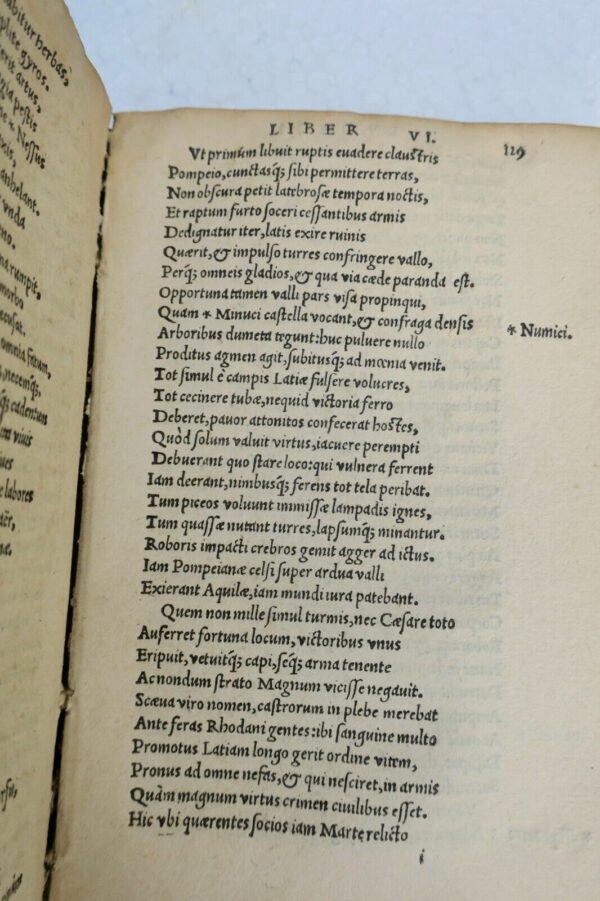 abitur herbas,
plite gyros.
erit artus,
gia pestis
Nessus
xis,
anhelant.
vnda
no.
rumpit,
morbo
cusat.
omnia fatum,
necemq́;
q́; cadentum
viuis
ues
labores
LIBER VI. 129
Vt primùm libuit ruptis euadere claustris
Pompeio, cunctasq́; sibi permittere terras,
Non obscura petit latebrosæ tempora noctis,
Et raptum furto soceri cessantibus armis
Dedignatur iter, latis exire ruinis
Quærit, & impulso turres confringere vallo,
Perq́; omneis gladios, & qua via cæde paranda est.
Opportuna tamen valli pars visa propinqui,
Quam * Minuci castella vocant, & confraga densis
* Numici.
Arboribus dumeta tegunt: huc puluere nullo
Proditus agmen agit, subitusq́; ad mœnia venit.
Tot simul è campis Latiæ fulsere volucres,
Tot cecinere tubæ, nequid victoria ferro
Deberet, pauor attonitos confecerat hostes,
Quòd solum valuit virtus, iacuere perempti
Debuerant quo stare loco: qui vulnera ferrent
Iam deerant, nimbusq́; ferens tot tela peribat.
Tum piceos voluunt immissæ lampadis ignes,
Tum quassæ nutant turres, lapsumq́; minantur.
Roboris impacti crebros gemit agger ad ictus.
Iam Pompeianæ celsi super ardua valli
Exierant Aquilæ, iam mundi iura patebant.
Quem non mille simul turmis, nec Cæsare toto
Auferret fortuna locum, victoribus vnus
Eripuit, vetuitq́; capi, seq́; arma tenente
Ac nondum strato Magnum vicisse negauit.
Scæua viro nomen, castrorum in plebe merebat
Ante feras Rhodani gentes: ibi sanguine multo
Promotus Latiam longo gerit ordine vitem,
Pronus ad omne nefas, & qui nesciret, in armis
Quàm magnum virtus crimen ciuilibus esset.
Hic vbi quærentes socios iam Marte relicto
i